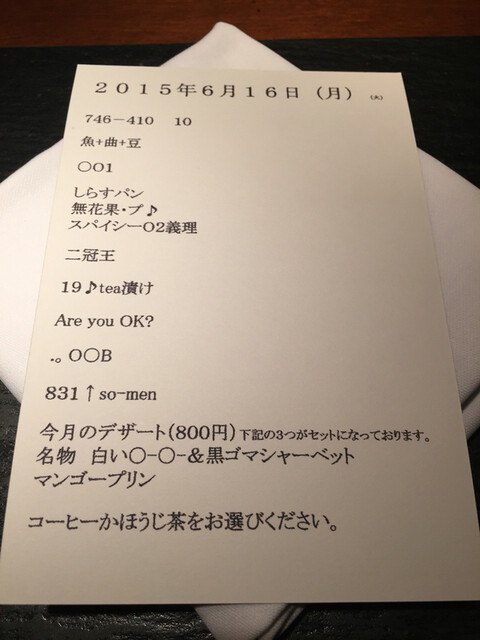 2015年6月16日(月) (火)
746-410 10
魚+曲+豆
○01
しらすパン
無花果・ブ♪
スパイシーO2義理
二冠王
19♪tea漬け
Are you OK?
.。O○B
831↑so-men
今月のデザート(800円)下記の3つがセットになっております。
名物 白い○-○-&黒ゴマシャーベット
マンゴープリン
コーヒーかほうじ茶をお選びください。